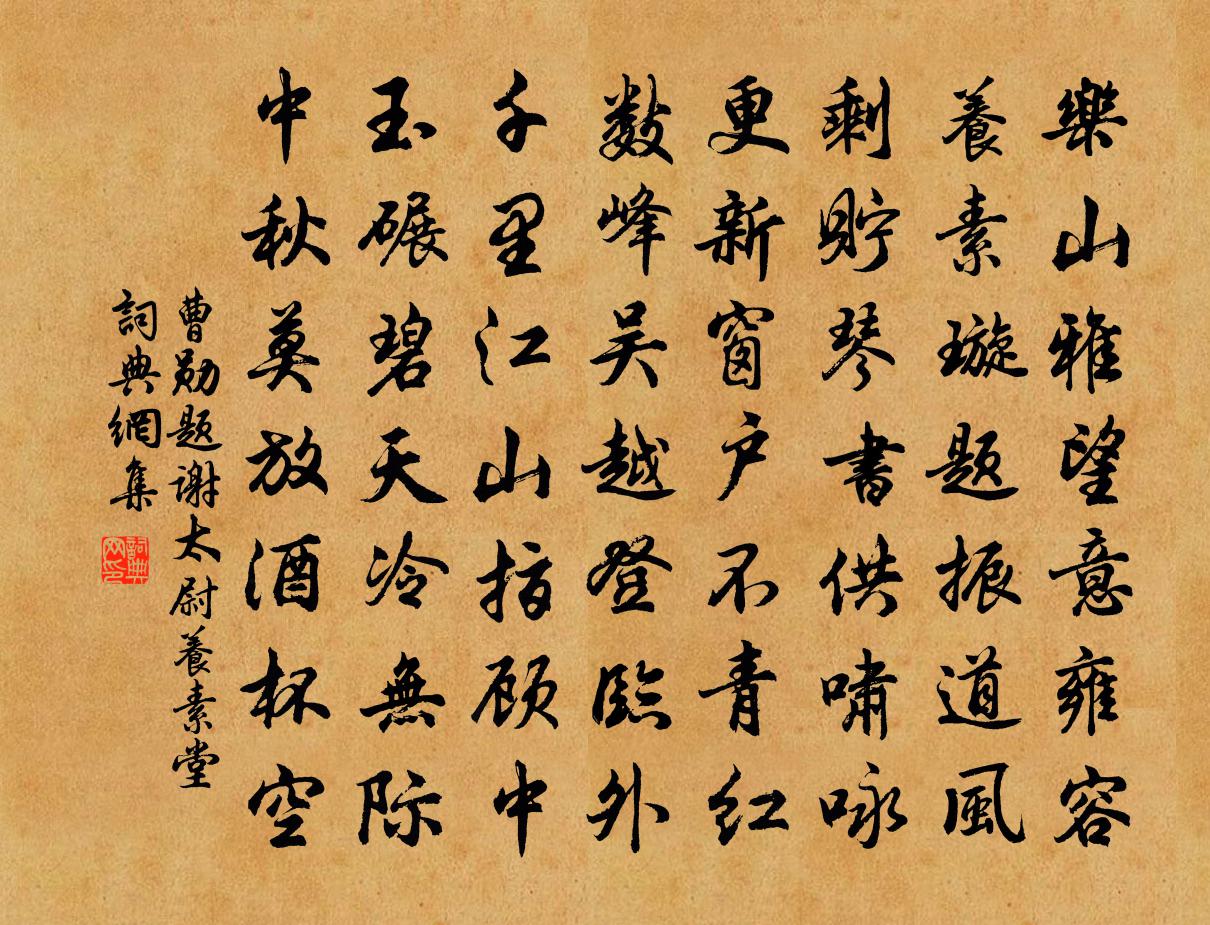 樂山雅望意雍容
養素璇题振道風
剩貯琴書供嘯咏
更新窗户不青红
数峰吴越登臨外
千里江山指顾中
玉碾碧天冷無际
中秋莫放酒杯空
曹勋题謝太尉養素堂
詞典網集
詞典网印